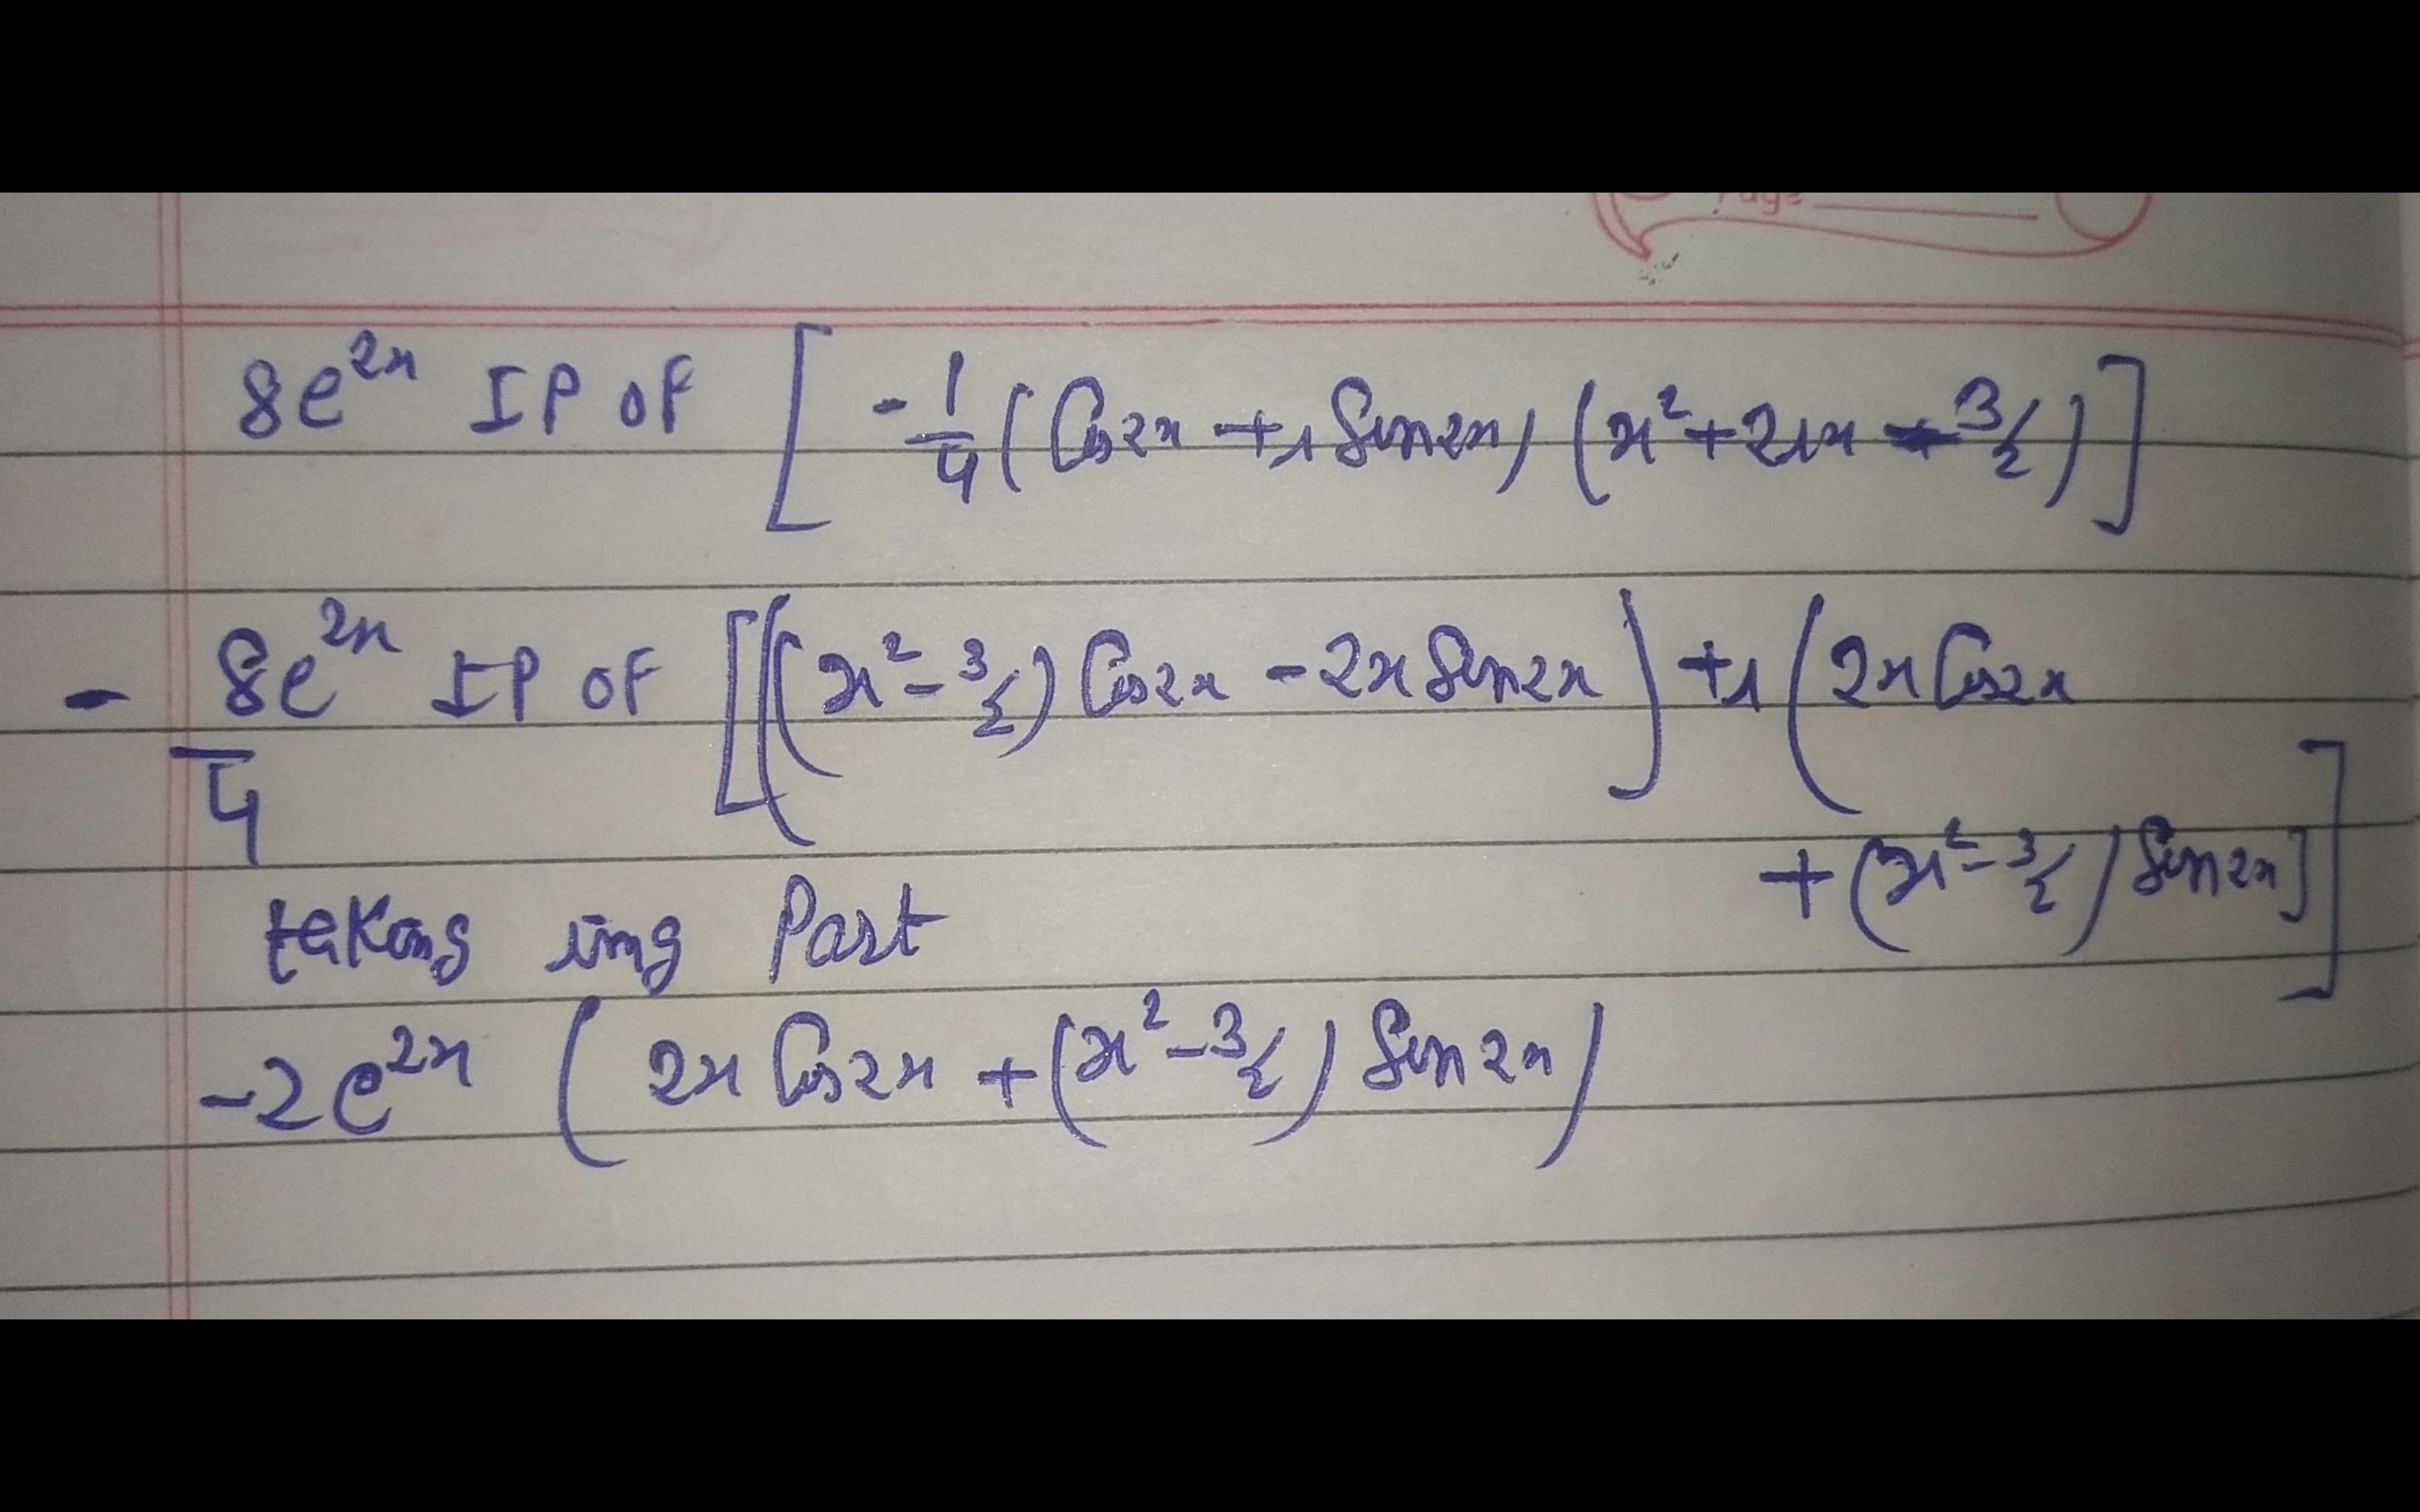 Page
8e^2x IP OF [ -1/4 (Cos2x + i Sin2x) (x² + 2ix - 3/2) ]
- 8e^2x/4 IP OF [((x² - 3/2) Cos2x - 2x Sin2x) + i (2x Cos2x
+ (x² - 3/2) Sin2x]]
taking img Part
-2e^2x ( 2x Cos2x + (x² - 3/2) Sin2x)